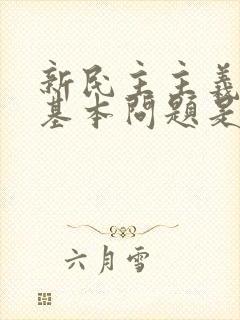 新民主主義
基本問題是
六月雪